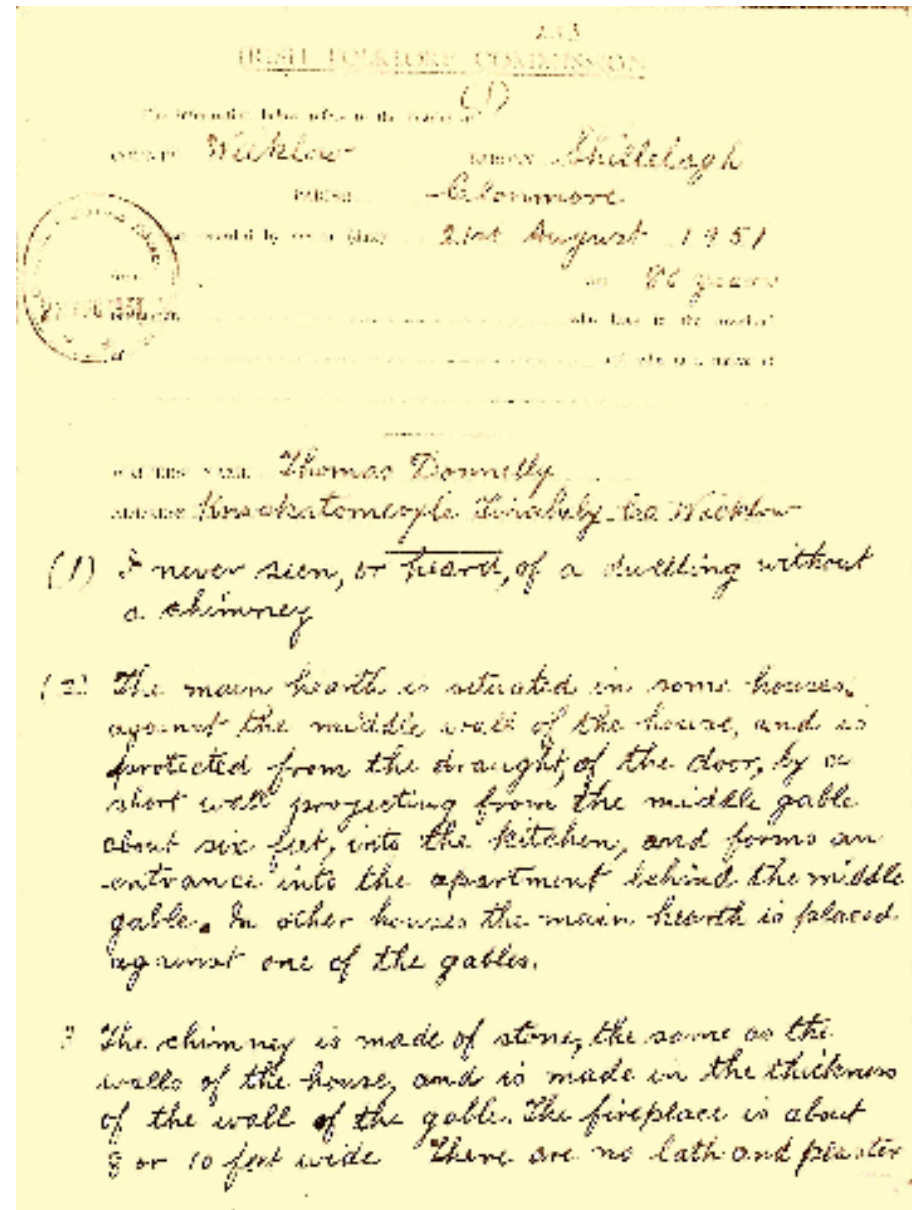 IRISH FOLKLORE COMMISSION
(1)
COUNTY Wicklow BARONY Shillelagh
PARISH Clonmore
21st August 1951
86 years
who lives in the
WRITER'S NAME Thomas Donnelly
ADDRESS Tinahely Co Wicklow
(1) I never seen, or heard, of a dwelling without
a chimney
(2) The main hearth is situated in some houses,
against the middle wall of the house, and is
protected from the draught, of the door, by a
short wall projecting from the middle gable
about six feet, into the kitchen, and forms an
entrance into the apartment behind the middle
gable. In other houses the main hearth is placed
against one of the gables.
3 The chimney is made of stone, the same as the
walls of the house, and is made in the thickness
of the wall of the gable. The fireplace is about
8 or 10 feet wide There are no lath and plaster